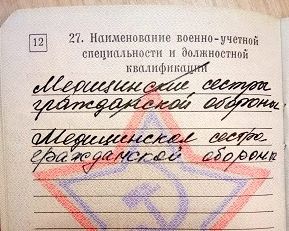 12
27. Наименование военно-учетной
специальности и должностной
квалификации
Медицинские сестры
гражданской обороны
Медицинская сестра
гражданской обороны